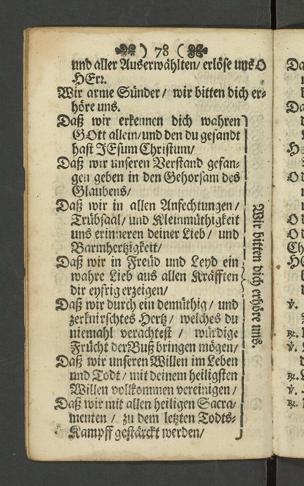 ) 78 (
und aller Auserwählten/ erlöse uns O
HErr.
Wir arme Sünder/ wir bitten dich er-
höre uns.
Daß wir erkennen dich wahren
GOtt allein/ und den du gesandt
hast JEsum Christum/
Daß wir unseren Verstand gefan-
gen geben in den Gehorsam des
Glaubens/
Daß wir in allen Anfechtungen/
Trübsaal/ und Kleinmüthigkeit
uns erinneren deiner Lieb/ und
Barmhertzigkeit/
Daß wir in Freud und Leyd ein
wahre Lieb aus allen Kräfften
dir eyfrig erzeigen/
Daß wir durch ein demüthig/ und
zerknirschtes Hertz/ welches du
niemahl verachtest/ würdige
Frücht der Buß bringen mögen/
Daß wir unseren Willen im Leben
und Todt/ mit deinem heiligsten
Willen vollkommen vereinigen/
Daß wir mit allen heiligen Sacra-
menten/ zu dem letzten Todts-
Kampff gestärckt werden/
Wir bitten dich erhöre uns.